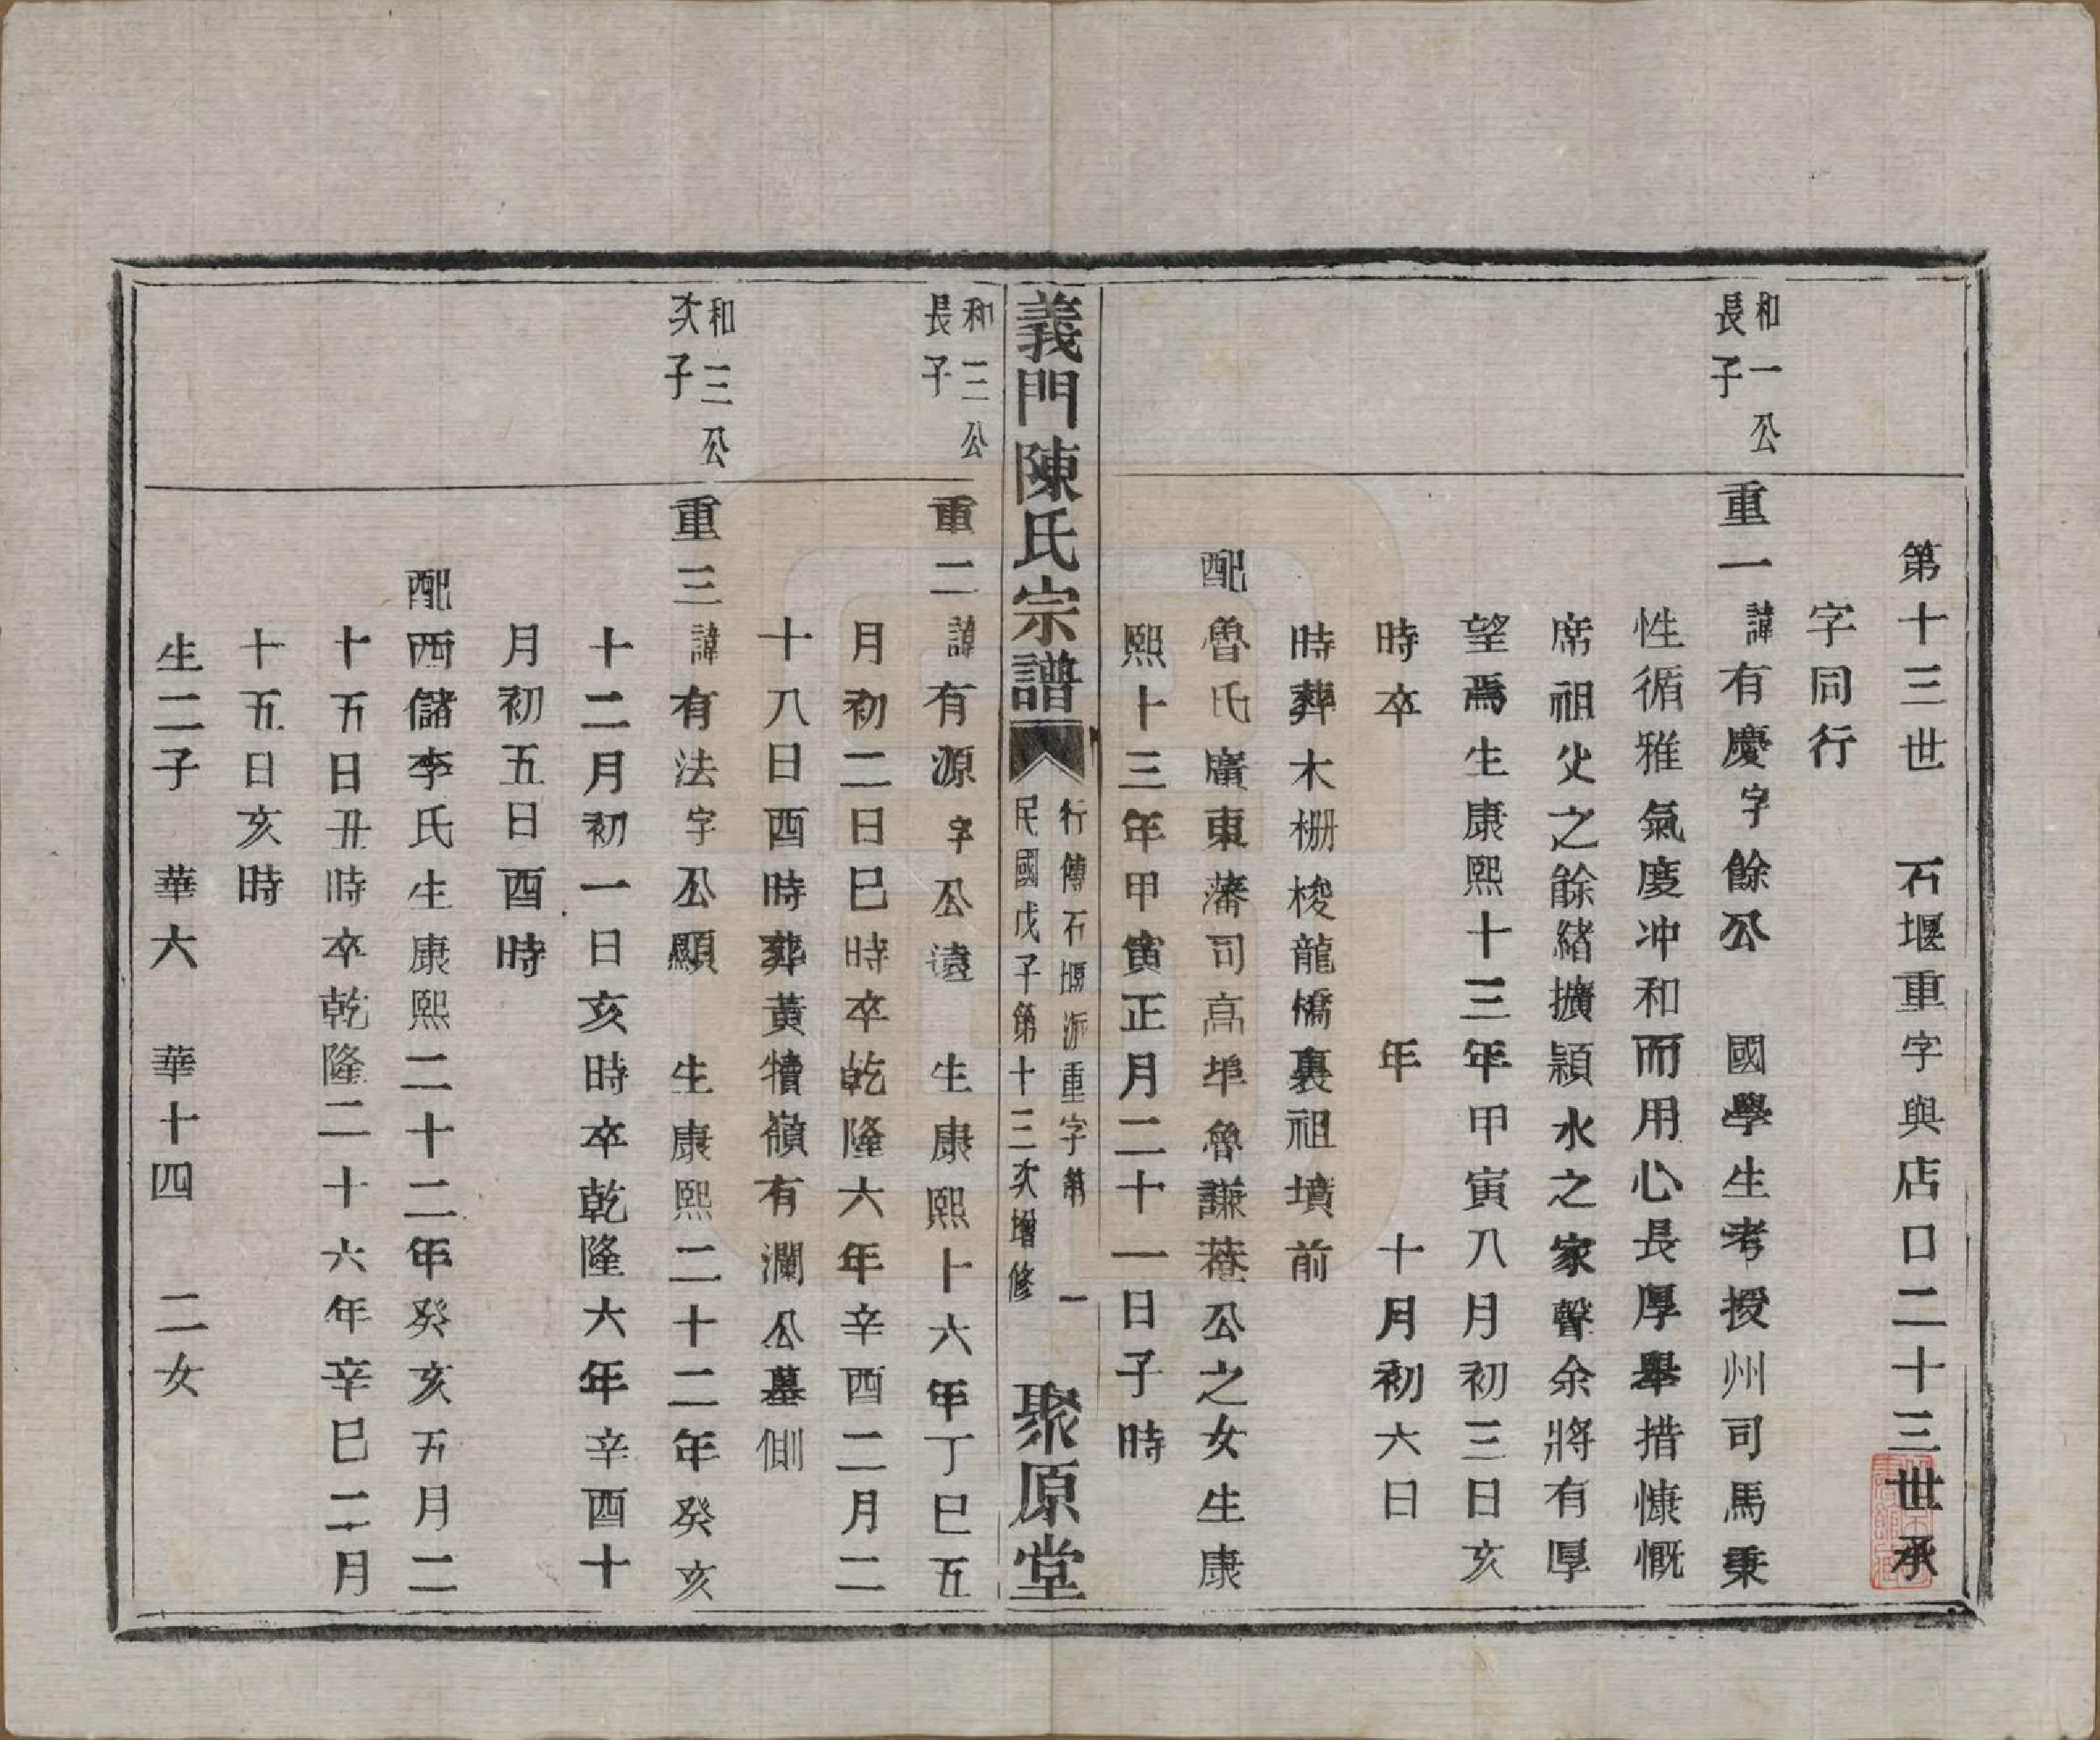 第十三世　石堰重字與店口二十三世承
字同行
和一公
長子
重一諱有慶字餘公　國學生考授州司馬秉
性循雅氣度冲和而用心長厚舉措慷慨
席祖父之餘緒擴潁水之家聲余將有厚
望焉生康熙十三年甲寅八月初三日亥
時卒　年　十月初六日
時葬木栅梭龍橋裏祖墳前
配魯氏廣東藩司高埠魯謙菴公之女生康
熙十三年甲寅正月二十一日子時
義門陳氏宗譜
行傳石堰派重字第　一
民國戊子第十三次增修
聚原堂
和三公
長子
重二諱有源字公遠　生康熙十六年丁巳五
月初二日巳時卒乾隆六年辛酉二月二
十八日酉時葬黃犢嶺有瀾公墓側
和三公
次子
重三諱有法字公顯　生康熙二十二年癸亥
十二月初一日亥時卒乾隆六年辛酉十
月初五日酉時
配西儲李氏生康熙二十二年癸亥五月二
十五日丑時卒乾隆二十六年辛巳二月
十五日亥時
生二子　華六　華十四　二女